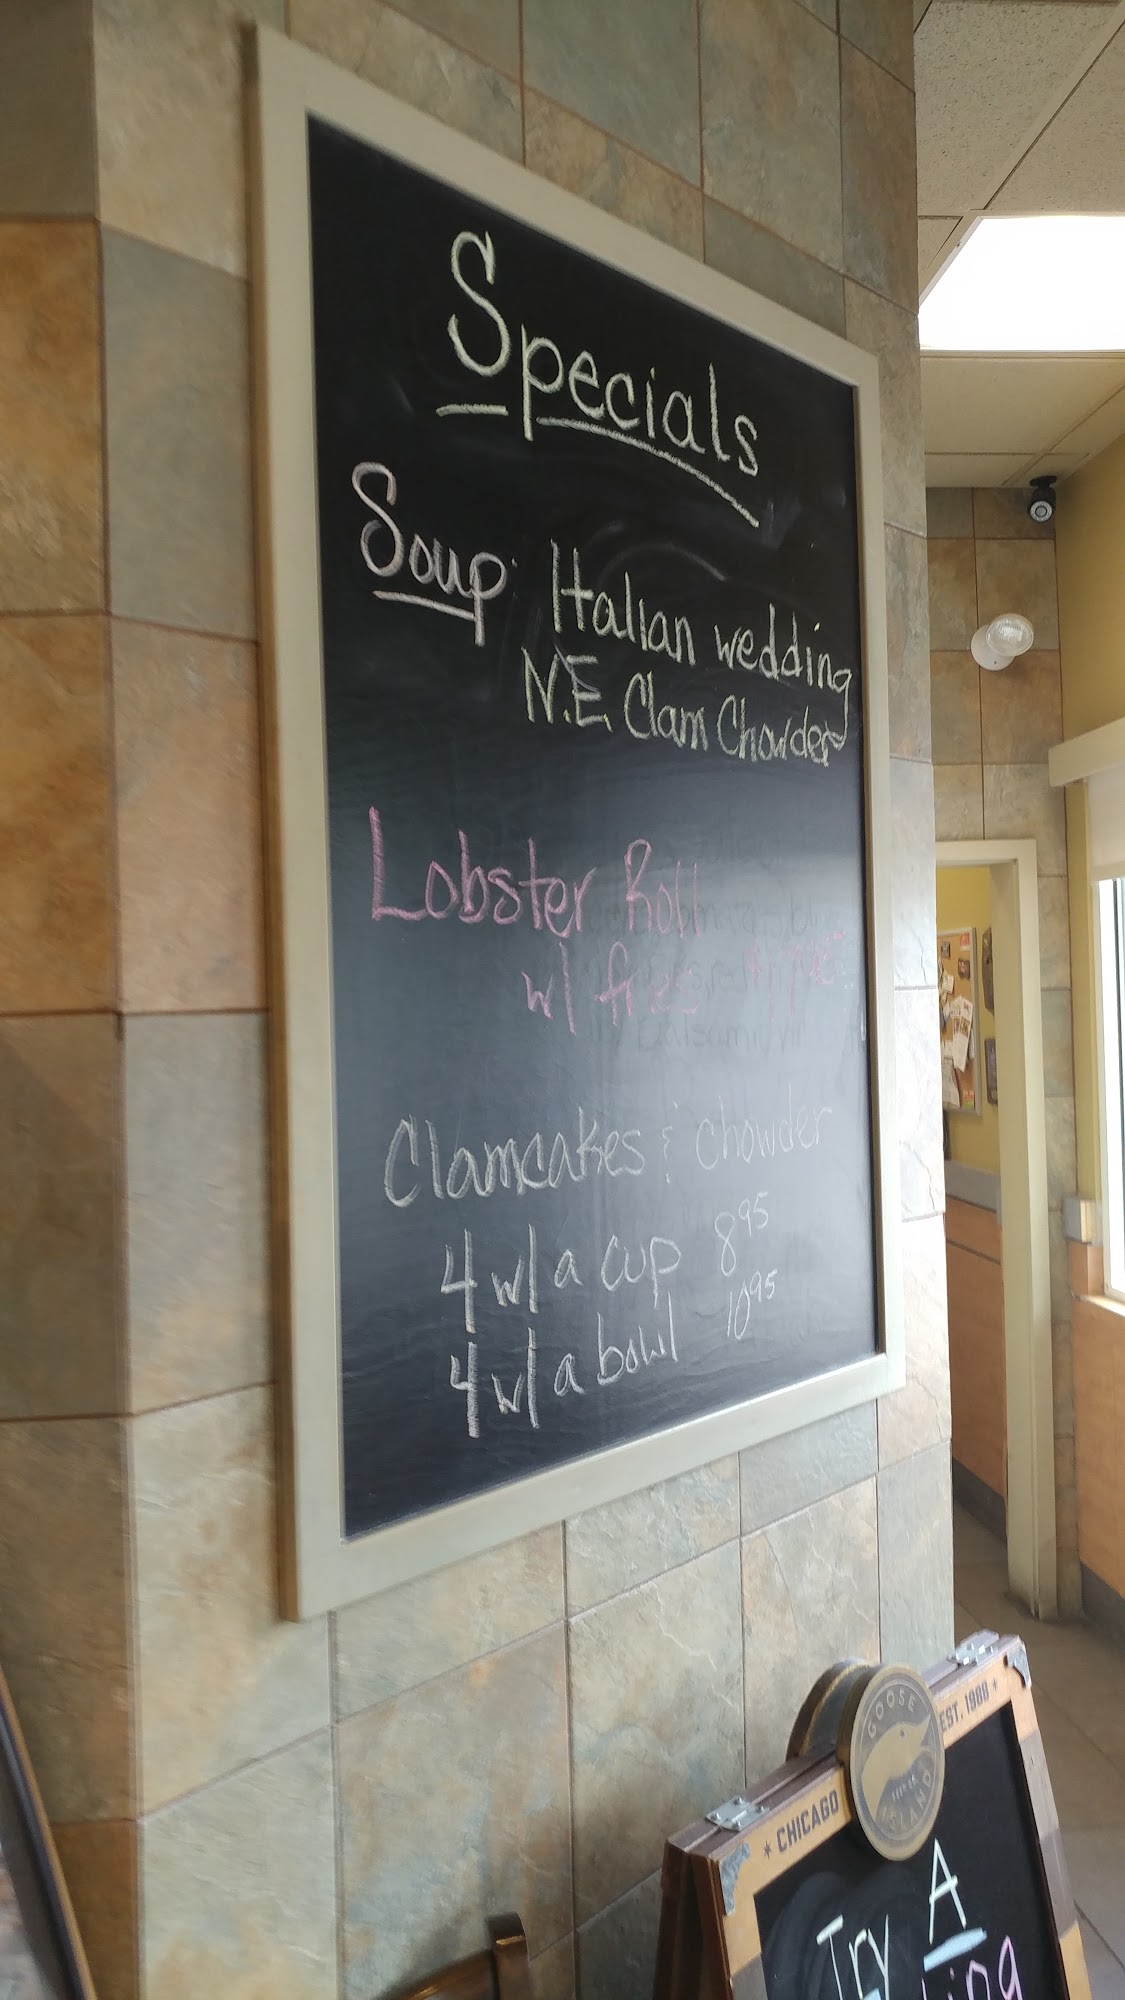 Specials
Soup: Italian wedding
N.E. Clam Chowder
Lobster Roll
w/ fries
Clamcakes & Chowder
4 w/ a cup 8 95
4 w/ a bowl 10 95
GOOSE
ISLAND
CHICAGO
EST. 1988
Try A